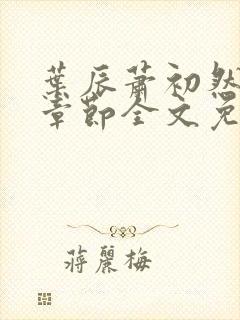 葉辰蕭初然
章節全文免
蔣麗梅